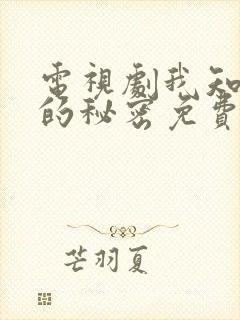 電視劇我知
的秘密免費
芒羽夏